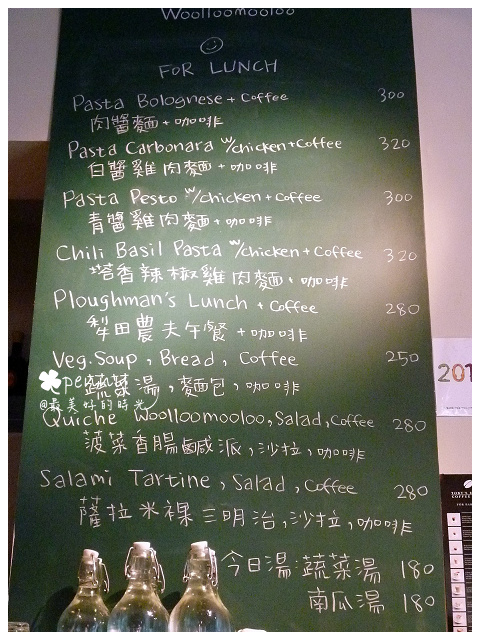 Woolloomooloo
FOR LUNCH
Pasta Bolognese + Coffee 300
肉醬麵 + 咖啡
Pasta Carbonara w/chicken + Coffee 320
白醬雞肉麵 + 咖啡
Pasta Pesto w/chicken + Coffee 300
青醬雞肉麵 + 咖啡
Chili Basil Pasta w/chicken + Coffee 320
塔香辣椒雞肉麵 + 咖啡
Ploughman's Lunch + Coffee 280
犁田農夫午餐 + 咖啡
Veg. Soup, Bread, Coffee 250
蔬菜湯, 麵包, 咖啡
@最美好的時光
Quiche Woolloomooloo, Salad, Coffee 280
菠菜香腸鹹派, 沙拉, 咖啡
Salami Tartine, Salad, Coffee 280
薩拉米裸三明治, 沙拉, 咖啡
今日湯 蔬菜湯 180
南瓜湯 180
201